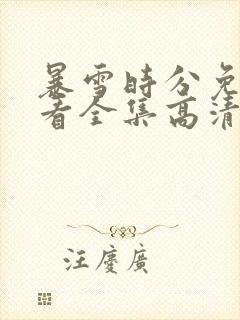 暴雪时分免
看全集高清
汪慶廣